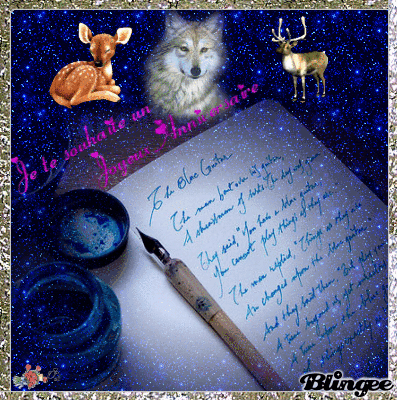 Je te souhaite un
Joyeux Anniversaire
The Blue Guitar
The man bent over his guitar,
A shearsman of sorts. The day was green.
They said, "You have a blue guitar,
You cannot play things as they are."
The man replied, "Things as they are
Are changed upon the blue guitar."
And they said then, "But play, you
A tune beyond us, yet ourselves,
A tune upon the blue
Blingee